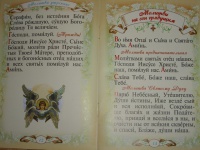 Серафим, без истления Бога
Слова рождшую, сущую Бого-
родицу Тя величаем.
Господи, помилуй. (Трижды)
Господи Иисусе Христе, Сыне
Божий, молитв ради Пречис-
тыя Твоея Матере, преподоб-
ных и богоносных отец наших
и всех святых помилуй нас.
Аминь.
Молитвы
Во имя Отца и Сына и Святаго
Духа. Аминь.
Молитва
Молитвами святых отец наших,
Господи Иисусе Христе, Боже
наш, помилуй нас. Аминь.
Слава Тебе, Боже наш, слава
Тебе.
Молитва Святому Духу
Царю Небесный, Утешителю,
Душе истины, Иже везде сый
и вся исполняяй, Сокровище
благих и жизни Подателю,
прииди и вселися в ны, и
очисти ны от всякия скверны,
и спаси, Блаже, души наша.